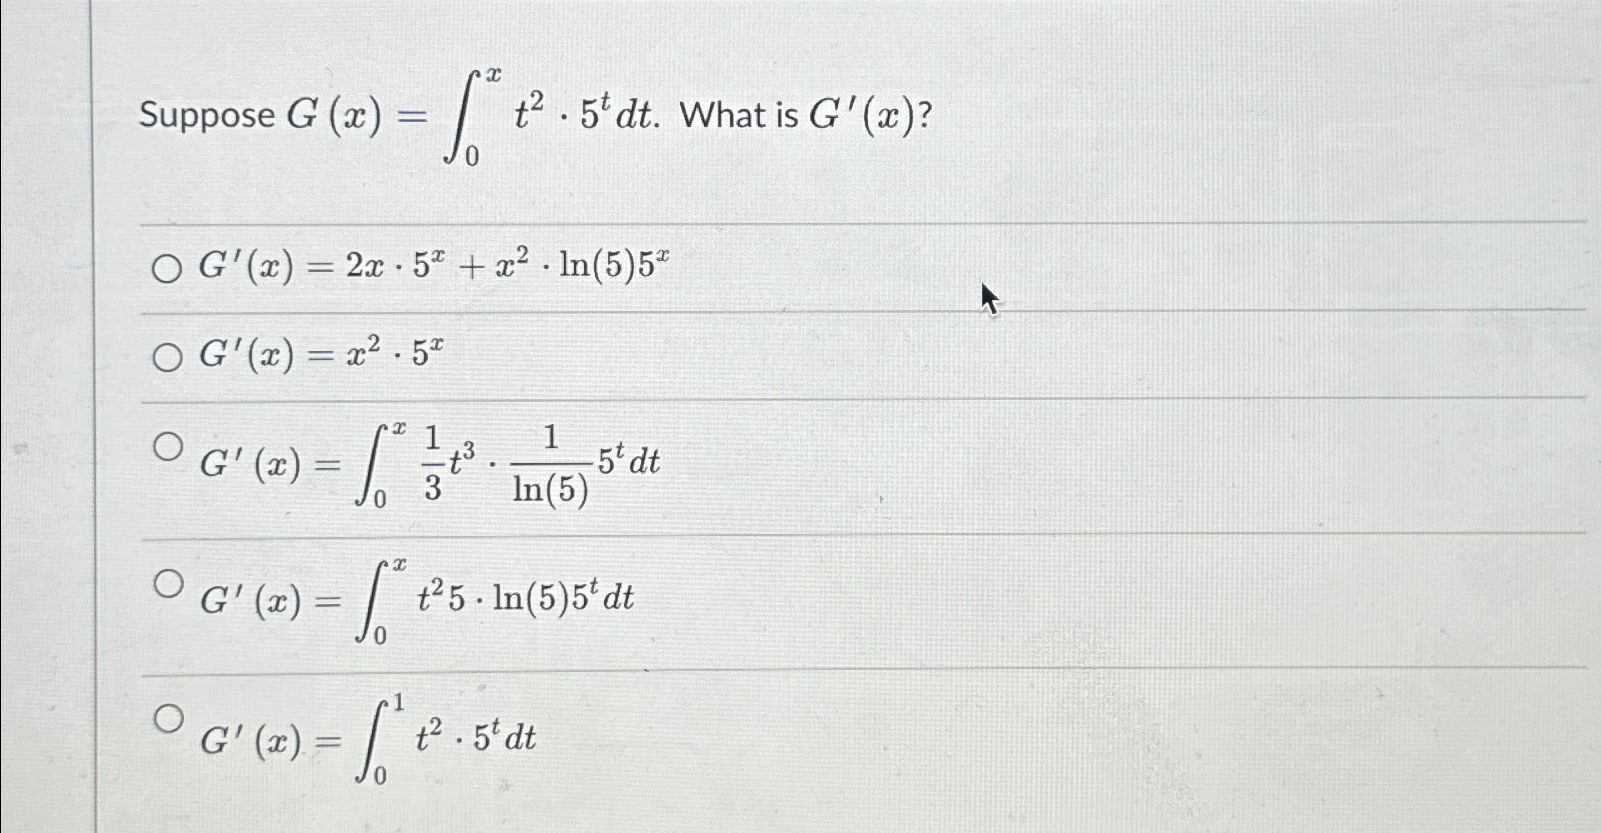 Suppose $G(x) = \int_0^x t^2 \cdot 5^t \, dt$. What is $G'(x)$?
$G'(x) = 2x \cdot 5^x + x^2 \cdot \ln(5) 5^x$
$G'(x) = x^2 \cdot 5^x$
$G'(x) = \int_0^x \frac{1}{3} t^3 \cdot \frac{1}{\ln(5)} 5^t \, dt$
$G'(x) = \int_0^x t^2 5 \cdot \ln(5) 5^t \, dt$
$G'(x) = \int_0^1 t^2 \cdot 5^t \, dt$